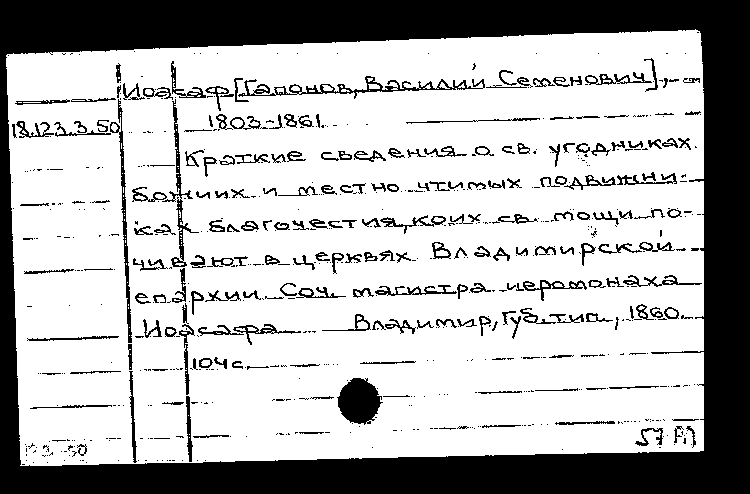 Иоасаф [Гапонов, Василий Семенович],
18.123.3.50 1803-1861.
Краткие сведения о св. угодниках
божиих и местно чтимых подвижни-
ках благочестия, коих св. мощи по-
чивают в церквях Владимирской
епархии. Соч. магистра иеромонаха
Иоасафа Владимир, Губ. тип., 1860.
104 с.
57